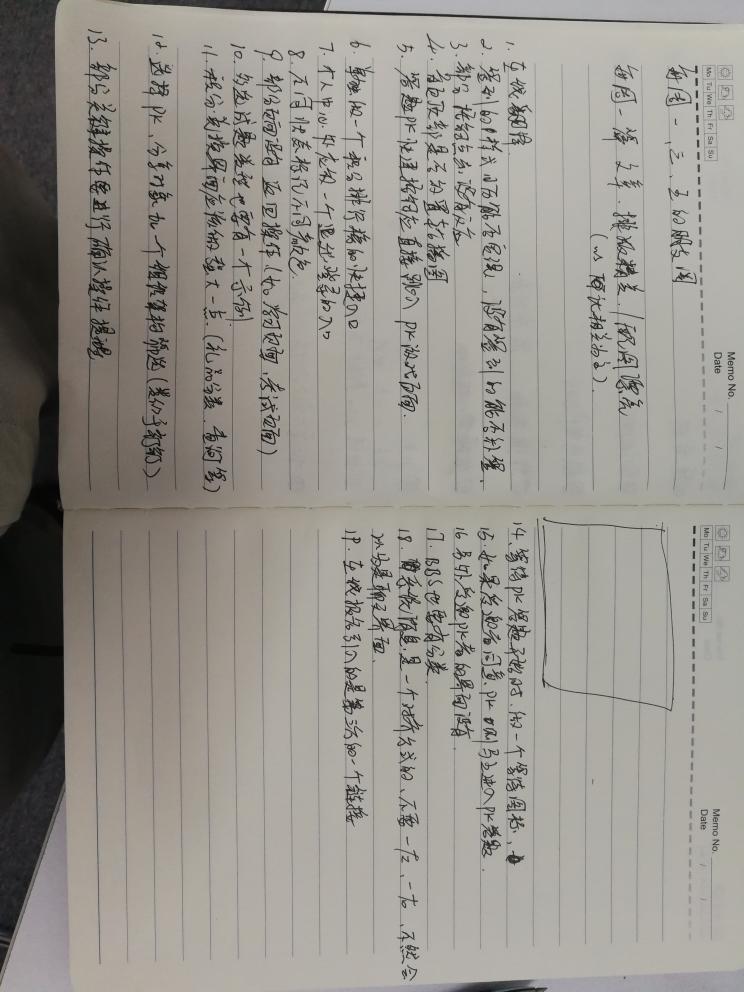 Memo No.
Mo Tu We Th Fr Sa Su
Date / /
每周一、三、五的朋友圈
每周一篇文章.排版精美./配图漂亮
(以 相关为主).
1. 在线翻译.
2. 签到的样式日历能否实现,没有签到的能否补签.
3. 部分按钮点击没有反应
4. 首页顶部是否放置轮播图
5. 答题PK快速按钮应直接跳入PK 页面.
6. 单独做一个积分排行榜的快捷入口
7. 个人中心外应做一个退出登录的入口
8. 不同状态标记不同颜色.
9. 部分页面没有返回操作.(如学习页面,考试页面)
10. 多选试题类型也要有一个示例.
11. 积分兑换界面应该做强大一点.(礼品分类、查询等)
12. 选择PK、分享对象加一个组织架构筛选(类似于钉钉)
13. 部分关键操作要进行确认操作提醒
Memo No.
Mo Tu We Th Fr Sa Su
Date / /
14. 等待PK答题开始时.做一个等待图标,
15. 如果受邀者同意.PK则马上进入PK答题.
16 另外受邀PK者的界面没有.
17. BBS也要有分类.
18. 系统消息是一个对齐方式的,不要一左、一右,不然会
以为是聊天界面.
19. 在线报名引入的是第三方的一个链接